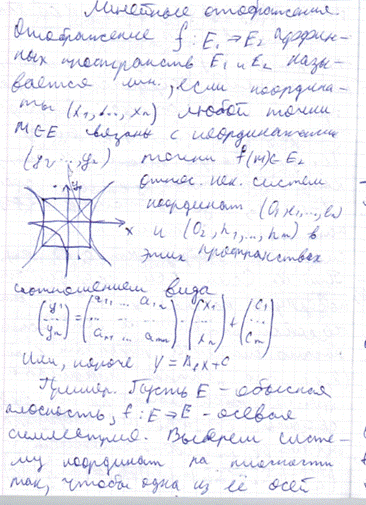 Линейные отображения.
Отображение f: E₁ → E₂ аффин-
ных пространств E₁ и E₂ назы-
вается лин., если координа-
ты (x₁, ..., xₙ) любой точки
M∈E связаны с координатами
(y₁, ..., yₙ) точки f(M)∈E₂
относ. нек. систем
координат (O₁ e₁, ..., eₙ)
и (O₂, h₁, ..., hₘ) в
этих пространствах
x
соотношением вида
(y₁ ... yₙ) = (a₁₁ ... a₁ₙ ... aₘ₁ ... aₘₙ) · (x₁ ... xₙ) + (c₁ ... cₘ)
Или, короче y = A_f x + c
Пример. Пусть E – обычная
плоскость, f: E → E – осевая
симметрия. Выберем систе-
му координат на плоскости
так, чтобы одна из её осей